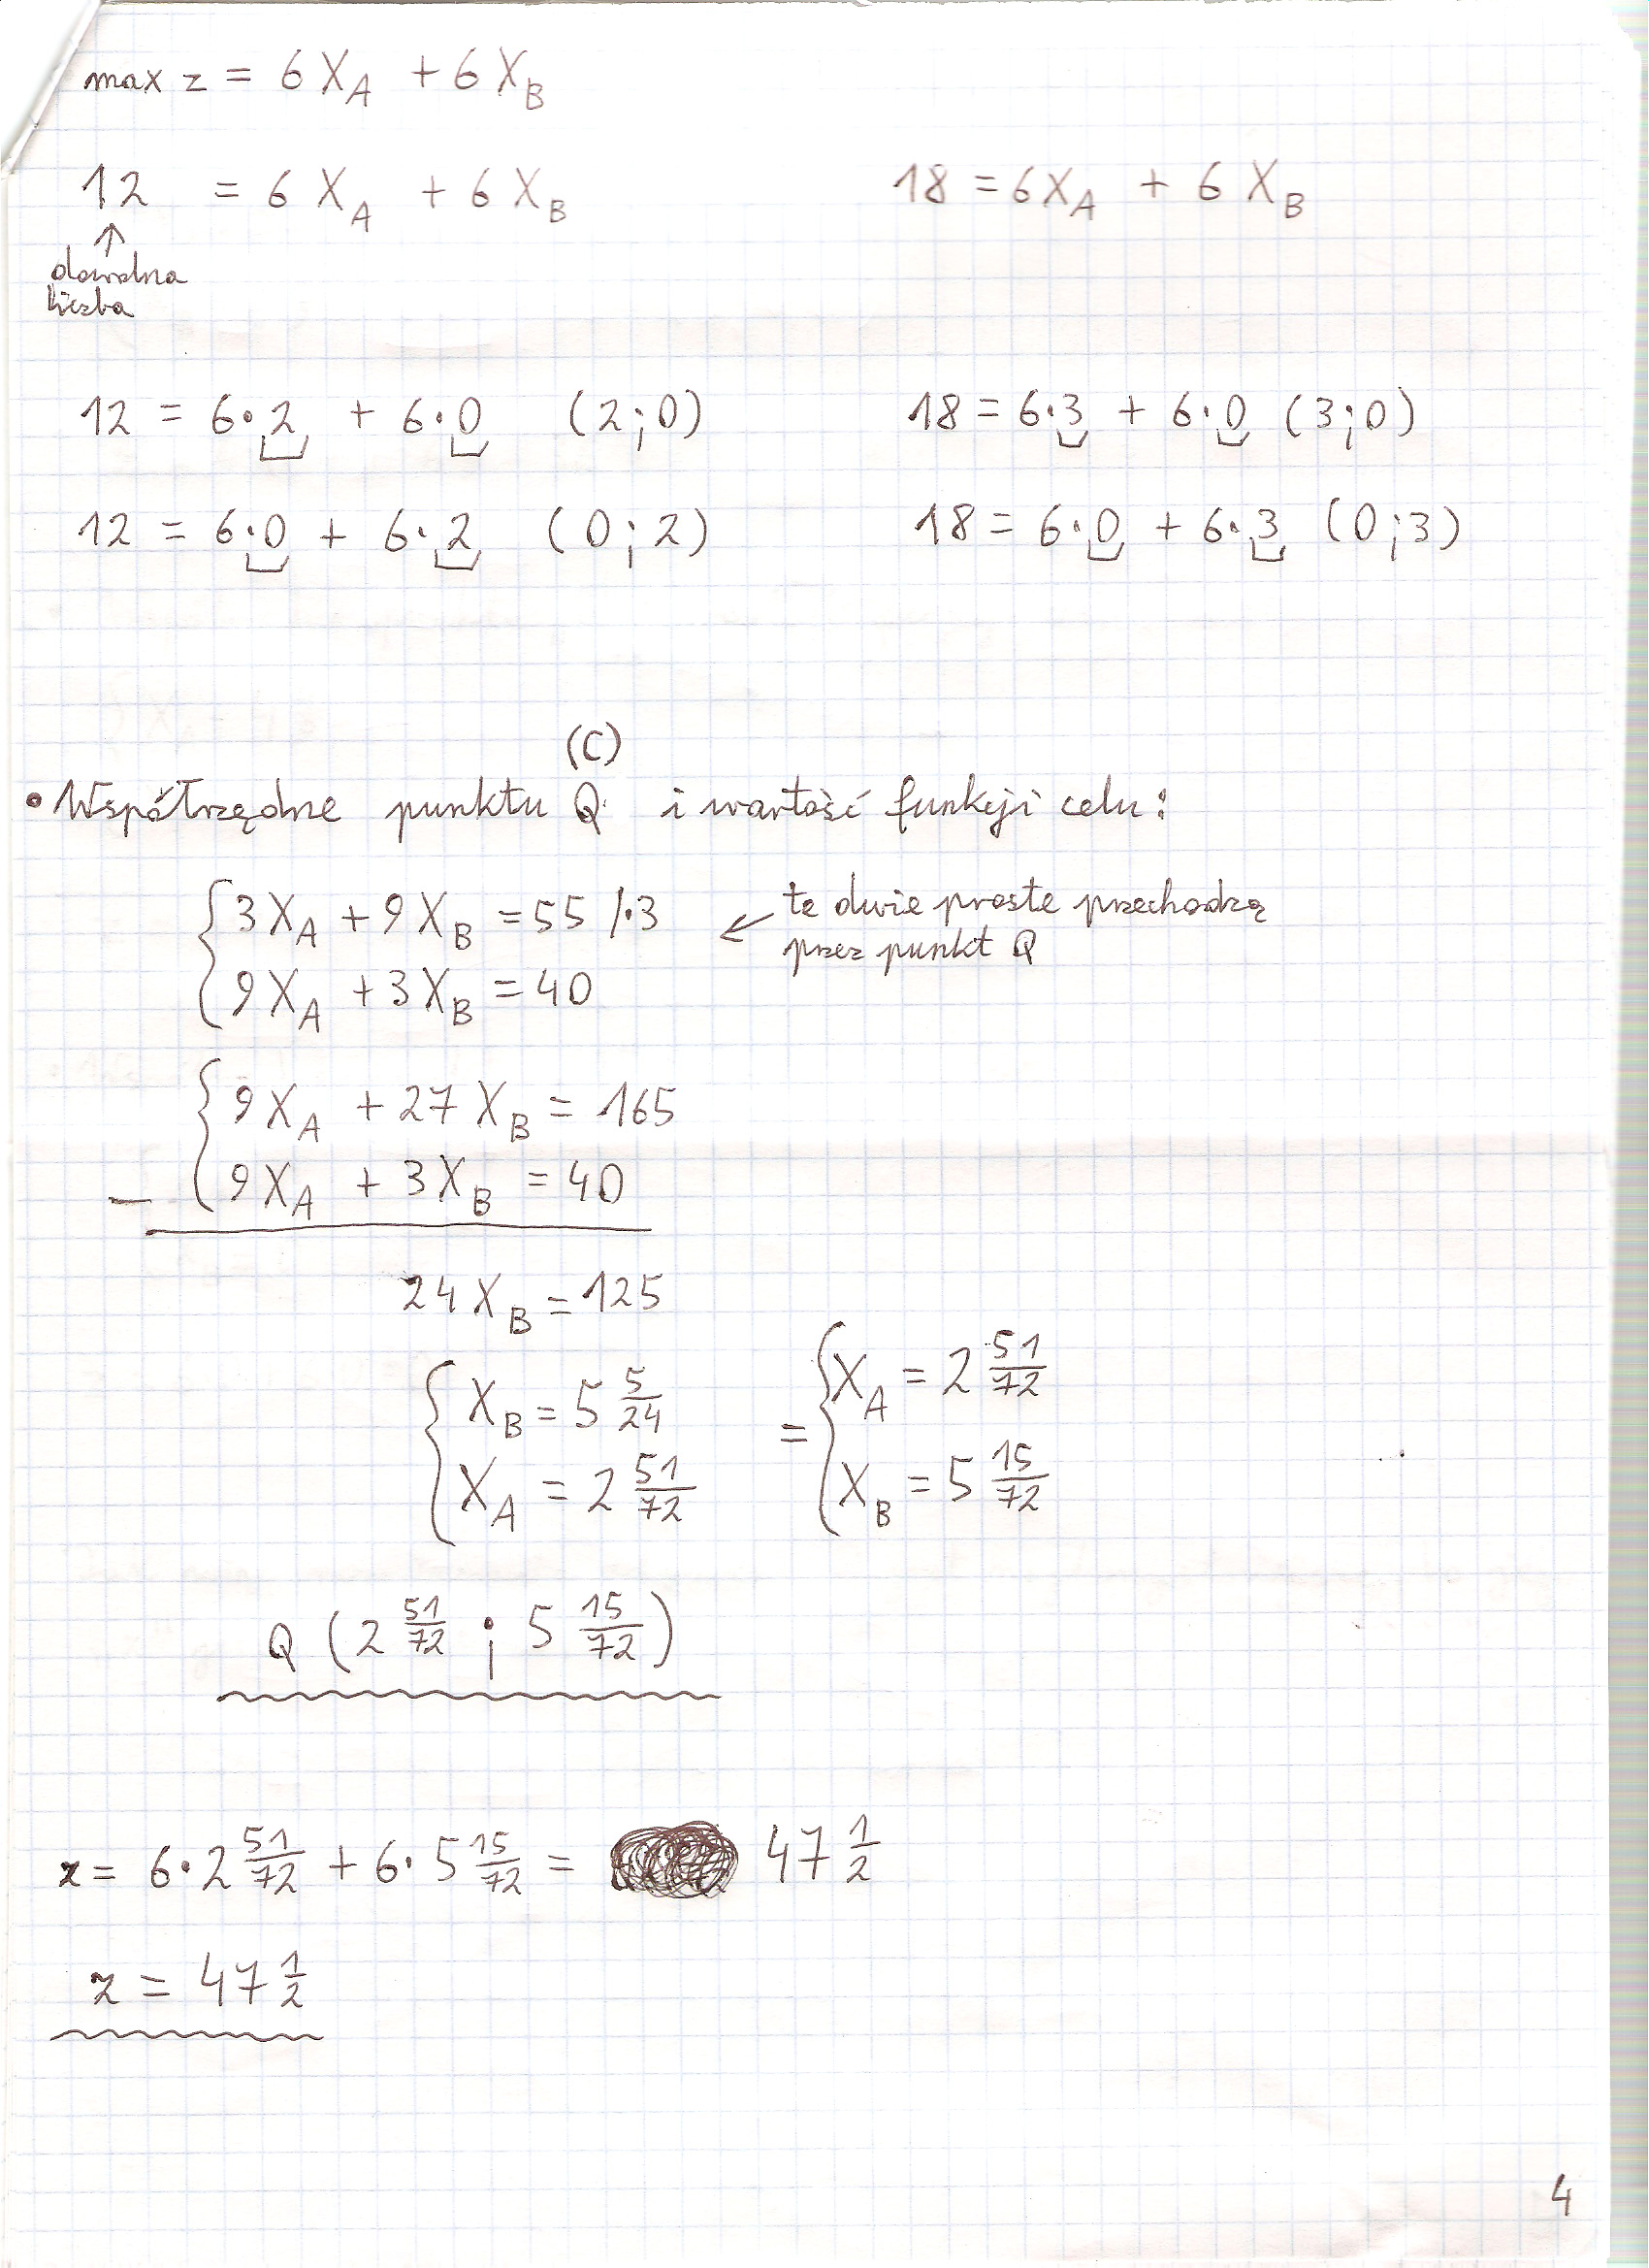 max z = 6 X_A + 6 X_B
12 = 6 X_A + 6 X_B
18 = 6X_A + 6 X_B
↑
dowolna
liczba
12 = 6·2 + 6·0 (2;0)
18 = 6·3 + 6·0 (3;0)
12 = 6·0 + 6·2 (0;2)
18 = 6·0 + 6·3 (0;3)
(C)
• Współrzędne punktu Q i wartość funkcji celu:
{ 3X_A + 9X_B = 55 /·3
9X_A + 3X_B = 40
← te dwie proste przechodzą
przez punkt Q
{ 9X_A + 27X_B = 165
− 9X_A + 3X_B = 40
24X_B = 125
{ X_B = 5 5/24
X_A = 2 51/72
= { X_A = 2 51/72
X_B = 5 15/72
Q (2 51/72 ; 5 15/72)
z = 6·2 51/72 + 6·5 15/72 = 47 1/2
z = 47 1/2
4